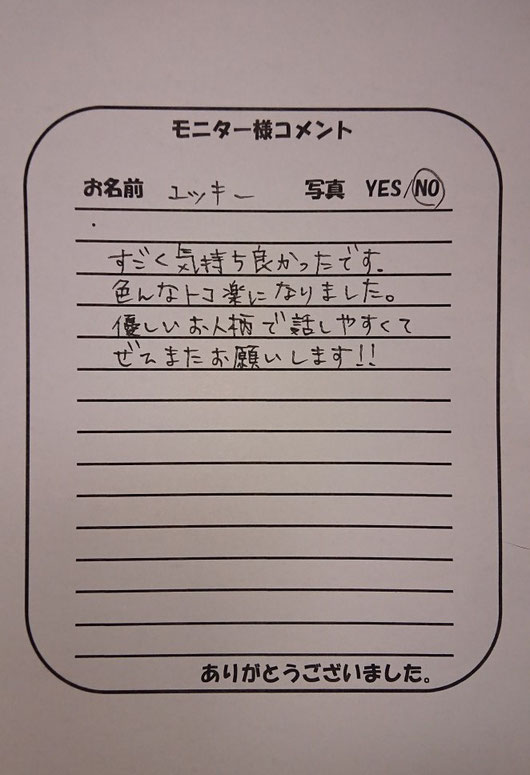 モニター様コメント
お名前 ユッキー 写真 YES/NO
すごく気持ち良かったです.
色んなトコ楽になりました。
優しいお人柄で話しやすくて
ぜひまたお願いします!!
ありがとうございました。